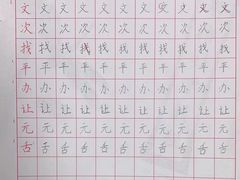 文文文文文文文文文文
次次次次次次次次次次
找找找找找找找找找找
平平平平平平平平平平
办办办办办办办办办办
让让让让让让让让让让
元元元元元元元元元元
舌舌舌舌舌舌舌舌舌舌